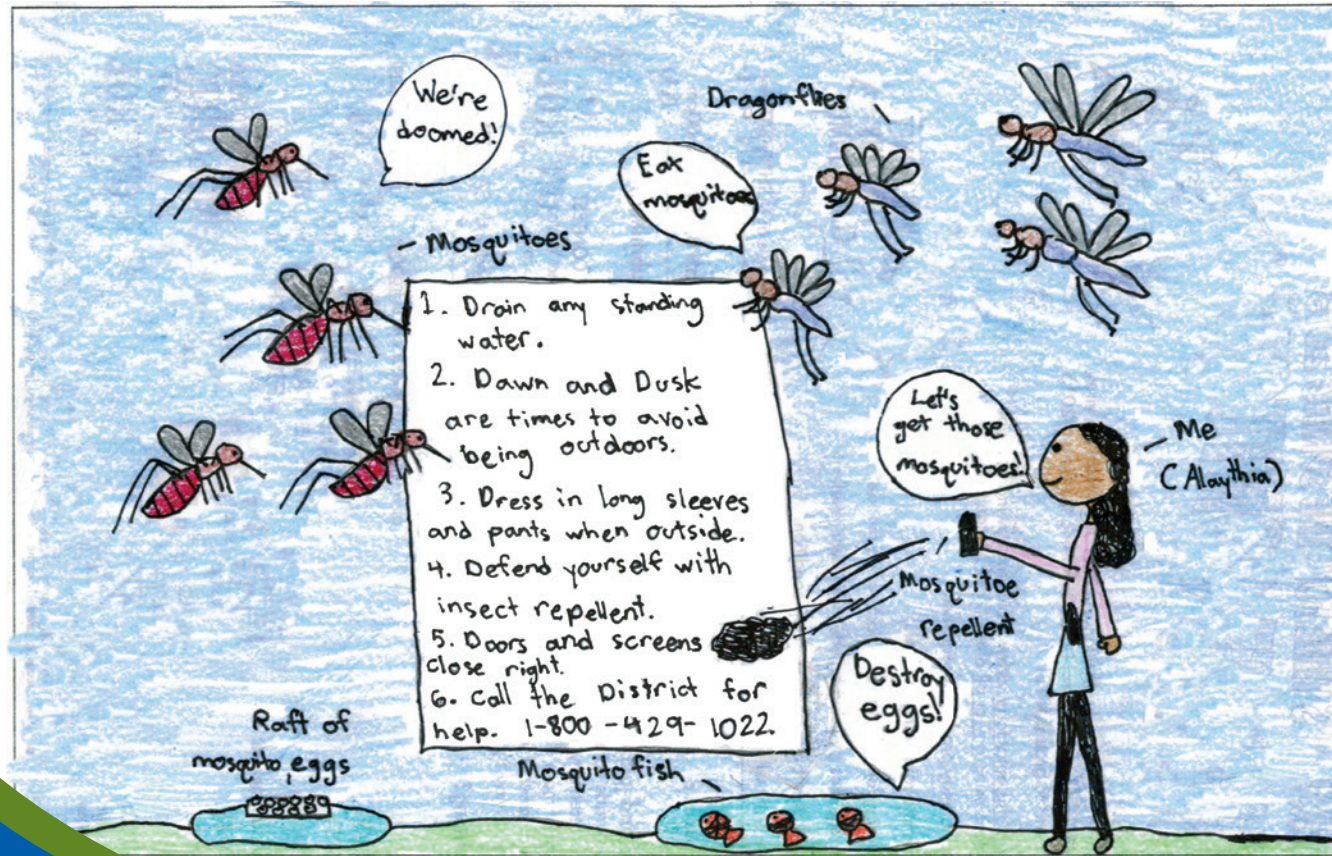 We're
doomed!
Dragonflies
Eat
mosquitoes
Mosquitoes
1. Drain any standing
water.
2. Dawn and Dusk
are times to avoid
being outdoors.
3. Dress in long sleeves
and pants when outside.
4. Defend yourself with
insect repellent.
5. Doors and screens
close right.
6. Call the District for
help. 1-800-429-1022.
Let's
get those
mosquitoes!
Me
(Alaythia)
Mosquitoe
repellent
Destroy
eggs!
Raft of
mosquito eggs
Mosquito fish